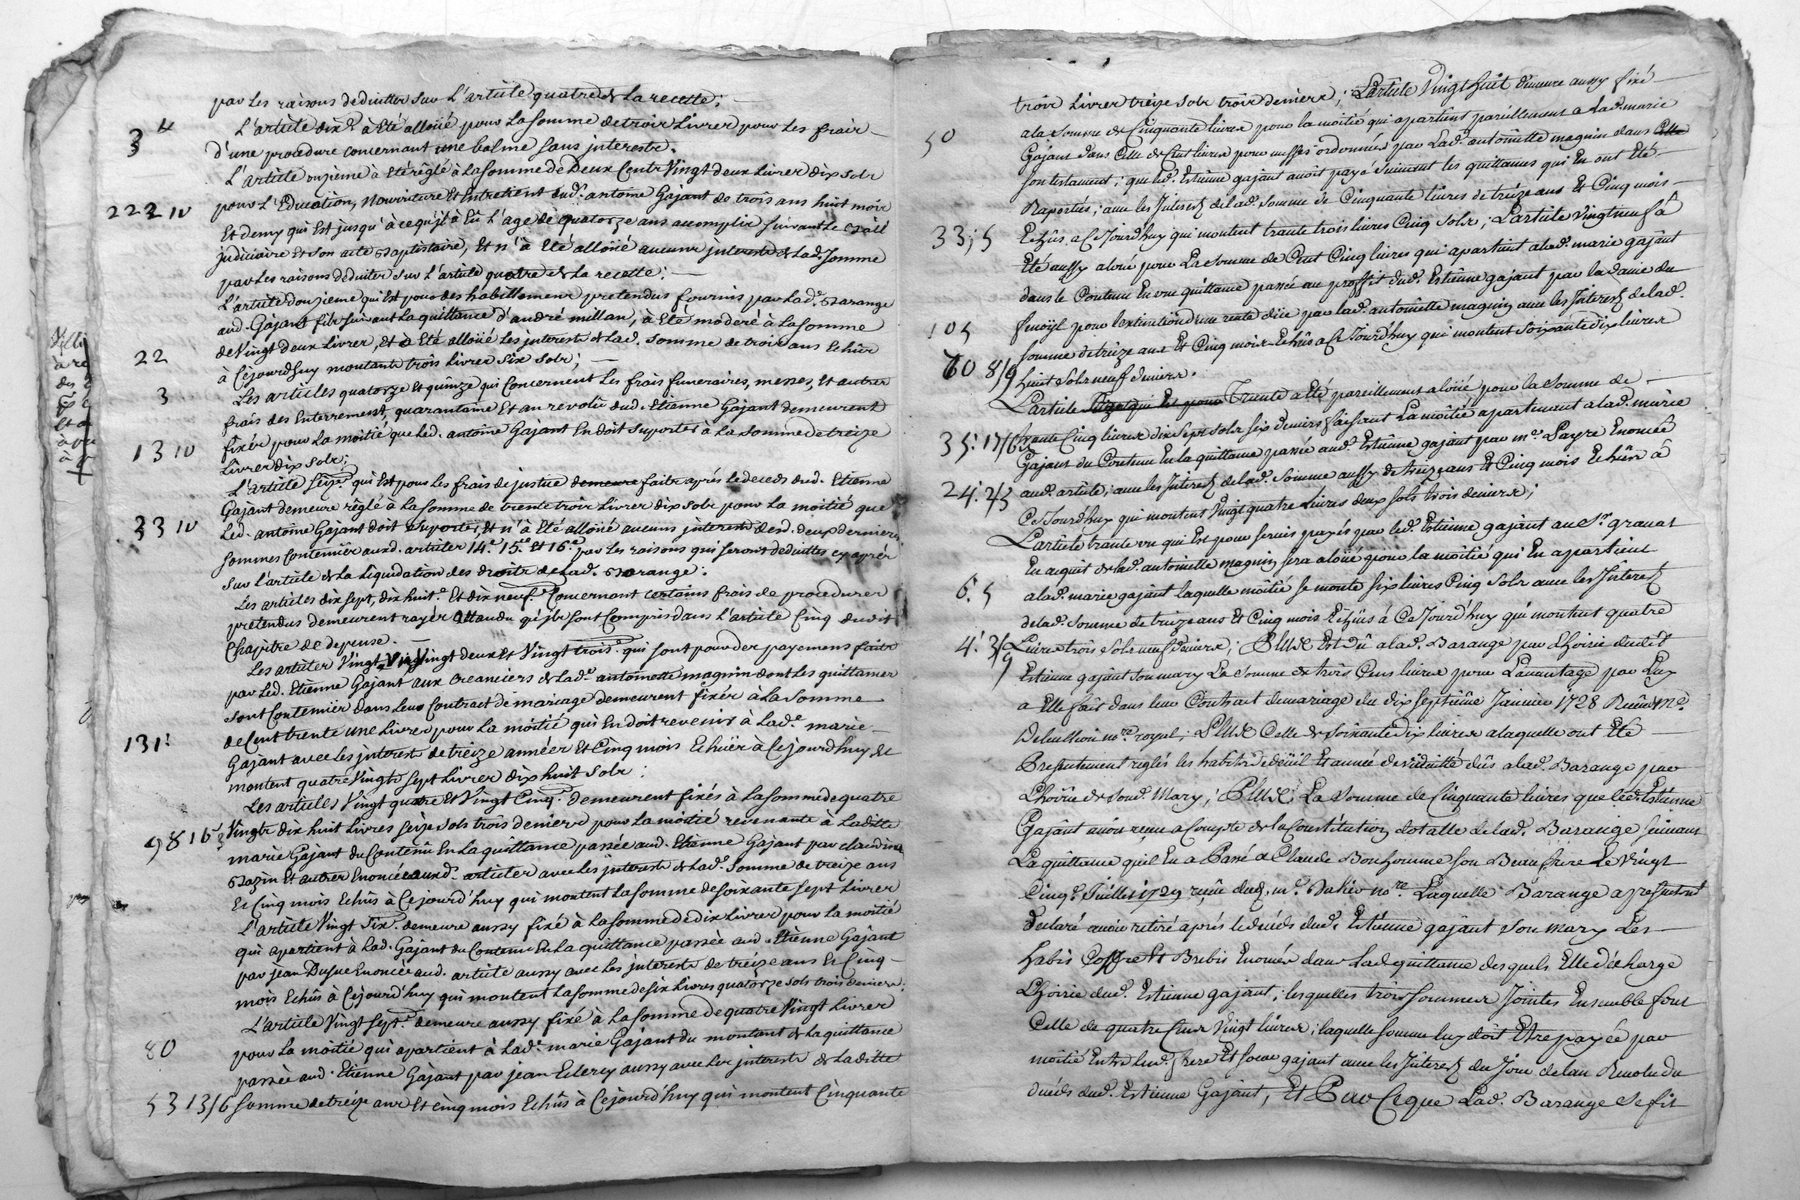 par les raisons deduittes sur L'article quatre de la recette;
3 ₶
L'article dix.e à eté alloüé pour la somme de trois Livres pour Les frais
d'une procedure concernant une balme sans interests.
L'Article onzieme à eté réglé à la somme de Deux Cents Vingt deux Livres dix sols
222 10
pour L'Education, nourriture et Entretient dud. antoine Gajant de trois ans huit mois
Et demy qui Est jusqu'à ce qu'il à Eû L'age de quatorze ans accomplis suivant
judiciaire et son acte Baptistaire, et n'à eté alloüé aucuns interests de lad. somme
par les raisons deduites sur L'article quatre de la recette;
L'article douzieme qui Est pour des habillemens pretendus fournis par Lad.e Barange
aud. Gajant fils suivant La quittance d'andré millan, à Eté moderé à La somme
22
de Vingt deux Livres, et à Eté alloüé les interests de Lad. somme de trois ans Echûs
3
à Cejourdhuy montants trois Livres six sols;
Les articles quatorze et quinze qui Concernent Les frais funeraires, messes, et autres
frais des Enterrement, quarantaine et an revolu dud. Etienne Gajant demeurent
13 10
fixés pour La moitié que Led. antoine Gajant En doit suporter à La somme de treize
Livres dix sols;
L'Article seiz.e qui Est pour Les frais de justice demeure faits après le deceds dud. Etienne
Gajant demeure réglé à La somme de trente trois Livres dix sols pour La moitié que
33 10
Led. antoine Gajant doit suporter, et n'à Eté alloüé aucuns interests desd. deux dernieres
sommes Contenües auxd. articles 14.e 15.e et 16.e par les raisons qui seront deduittes cy après
sur l'article de La Liquidation des droits de Lad. Barange:
Les articles dix sept, dix huit.e Et dix neuf.e Concernant Certains frais de procedures
pretendus demeurent rayés attendu qu'ils sont Compris dans L'article Cinq dudit
Chapitre de depense.
Les articles Vingt, Vingt deux et Vingt trois.e qui sont pour des payemens faits
par Led. Etienne Gajant aux creanciers de Lad.e antoinette magnin dont Les quittances
sont Contenües dans Leur Contract de mariage demeurent fixés à La somme
131:
de Cent trente une Livres pour La moitié qui En doit revenir à Lad.e marie
Gajant avec Les interests de treize années et Cinq mois Echües à Cejourdhuy et
montent quatre Vingts sept Livres dix huit sols:
Les articles Vingt quatre et Vingt Cinq.e demeurent fixés à La somme de quatre
98 16 3
Vingts dix huit Livres seize sols trois deniers pour La moitié revenante à Laditte
marie Gajant du Contenû En La quittance passée aud. Etienne Gajant par claudine
Bazin et autres Enoncée auxd. articles avec Les interests de Lad.e somme de treize ans
Et Cinq mois Echûs à Cejourd'huy qui montent La somme de soixante sept Livres
L'article Vingt Six.e demeure aussy fixé à La somme de dix Livres pour La moitié
qui apartient à Lad. Gajant du Contenu En La quittance passée aud. Etienne Gajant
par jean Enoncée aud. article aussy avec Les interests de treize ans Et Cinq
mois Echûs à Cejourd'huy qui montent La somme de six Livres quatorze sols trois deniers;
L'article Vingt sept.e demeure aussy fixé à La somme de quatre Vingt Livres
80
pour La moitié qui apartient à Lad.e marie Gajant du montant de La quittance
passée aud. Etienne Gajant par jean aussy avec Les interests de Laditte
53 13/6
somme de treize ans Et cinq mois Echûs à Cejourd'huy qui montent Cinquante
trois Livres treize sols trois deniers; L'article Vingt huit demeure aussy fixé
50
a la somme de Cinquante livres pour la moitié qui apartient pareillement a lad. marie
Gajant dans Celle de Cent livres pour messes ordonnées par Lad. antoinette magnin dans
son testament; que led. Estienne gajant auoit payé suivant les quittances qui En ont Eté
Raportés; avec les Interest de lad. somme de Cinquante livres de treize ans Et Cinq mois
33; 5
Echûs a Ce Jourdhuy qui montent trante trois livres Cinq Sols; L'article vingtneuf à
Eté aussy aloüé pour La Somme de Cent Cinq livres qui apartient a lad. marie gajant
dans le Contenu En une quittance passée au proffit dud. Estienne gajant par la dame du
105
fenoÿl pour l'extinction d'une rente düe par lad. antoinette magnin avec les Interest de lad.
somme de treize ans Et Cinq mois Echûs a Ce Jourdhuy qui montent soixante dix livres
70 8/9
huit Sols neuf deniers.
L'article Trante a Eté pareillement aloüé pour la Somme de
35: 17/6
trante Cinq livres dix Sept Sols Six deniers faisant La moitié apartenant a lad. marie
Gajant du Contenu En la quittance passée aud. Estienne gajant par m.e Payre Enoncée
24: 2/3
aud. article; avec les Interest de lad. Somme aussy de treize ans Et Cinq mois Echûs à
Ce Jourd'huy qui montent Vingt quatre Livres deux Sols trois deniers;
L'article trante un qui Est pour servis payés par led. Estienne gajant au S.r grauat
En acquit de lad. antoinette magnin sera aloüé pour la moitié qui En apartient
6: 5
a lad. marie gajant laquelle moitié se monte Six livres Cinq Sols avec les Interest
de lad. Somme de treize ans Et Cinq mois Echûs à Ce Jourd'huy qui montent quatre
4: 3/9
Livres trois Sols neuf deniers; PLUS Est Dû a lad. Barange par L'hoirie dudit
Estienne gajant son mary La Somme de trois Cens livres pour L'auantage par Luy
a Elle fait dans leur Contract de mariage du dix septième Januier 1728 Reçu M.e
no.re royal; PLUS Celle de soixante dix livres a laquelle ont Eté
Presentement reglés les habits de deüil Et année de viduité dûs a lad. Barange par
L'hoirie de Sond. Mary; PLUS La Somme de Cinquante livres que led. Estienne
Gajant auoit reçue a Compte de la Constitution dotalle de lad. Barange suivant
La quittance qu'il En a Passé a Claude Bonhomme son Beau frere le Vingt
Cinq.e Juillet 1729 reçue dud. m.e no.re Laquelle Barange a presentement
Declaré auoir retiré après le décéds dud. Estienne gajant Son Mary Les
habis Coffre Et Brebis Enoncés dans lad. quittance desquels Elle décharge
L'hoirie dud. Estienne gajant; lesquelles trois sommes Jointes Ensemble font
Celle de quatre Cens Vingt livres; laquelle somme luy doit Etre payée par
moitié Entre lesd. frere Et soeur gajant avec les Interest du Jour de l'an Revolu du
décéds dud. Estienne Gajant, Et Parceque Lad. Barange se fit